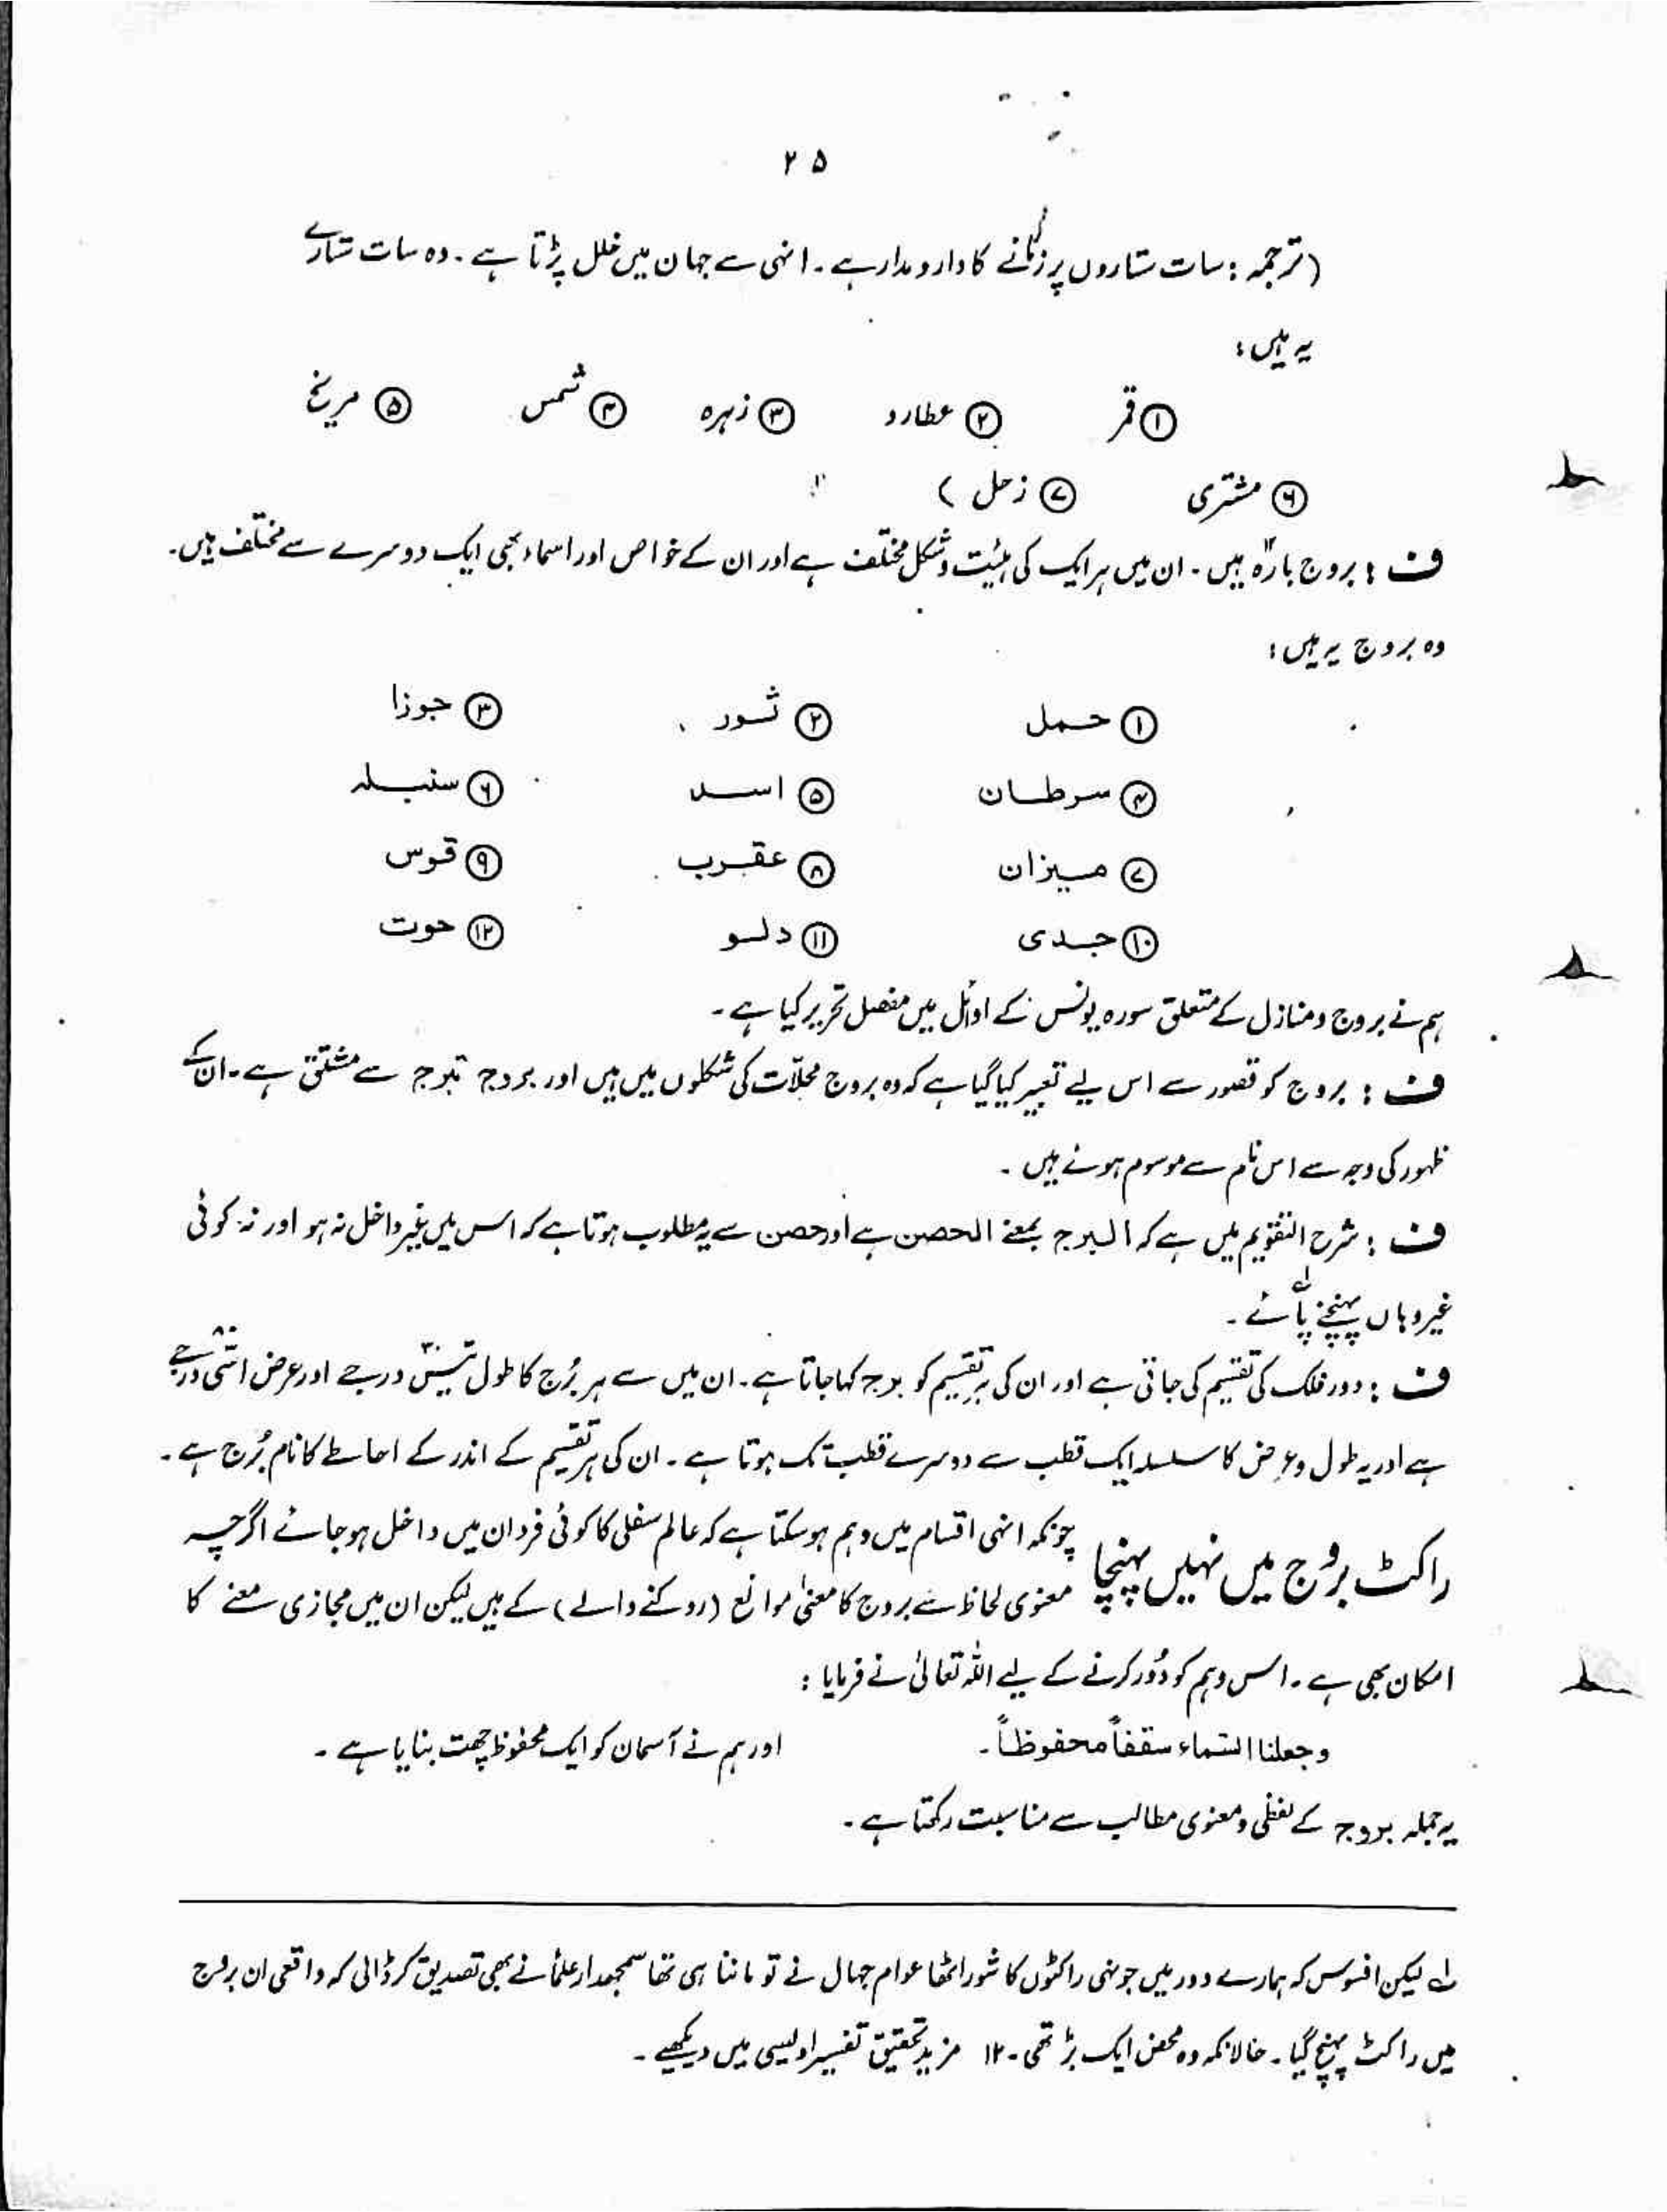 ۲۵
(ترجمہ : سات ستاروں پر زمانے کا دارومدار ہے ۔ انہی سے جہان میں خلل پڑتا ہے ۔ وہ سات ستارے
یہ ہیں :
① قمر ② عطارد ③ زہرہ ④ شمس ⑤ مریخ
⑥ مشتری ⑦ زحل )
ف : بروج بارہ ۱۲ ہیں ۔ ان میں ہر ایک کی ہیئت و شکل مختلف ہے اور ان کے خواص اور اسماء بھی ایک دوسرے سے مختلف ہیں ۔
وہ بروج یہ ہیں :
① حمل ② ثور ③ جوزا
④ سرطان ⑤ اسد ⑥ سنبلہ
⑦ میزان ⑧ عقرب ⑨ قوس
⑩ جدی ⑪ دلو ⑫ حوت
ہم نے بروج و منازل کے متعلق سورہ یونس کے اوائل میں مفصل تحریر کیا ہے ۔
ف : بروج کو قصور سے اس لیے تعبیر کیا گیا ہے کہ وہ بروج محلات کی شکلوں میں ہیں اور بروج تبرج سے مشتق ہے ۔ ان کے
ظہور کی وجہ سے اس نام سے موسوم ہوئے ہیں ۔
ف : شرح التقویم میں ہے کہ البرج بمعنے الحصن ہے اور حصن سے یہ مطلوب ہوتا ہے کہ اس میں غیر داخل نہ ہو اور نہ کوئی
غیر وہاں پہنچنے پائے ۔
ف : دور فلک کی تقسیم کی جاتی ہے اور ان کی ہر تقسیم کو برج کہا جاتا ہے ۔ ان میں سے ہر بُرج کا طول تیس ۳۰ درجے اور عرض اسّی ۸۰ درجے
ہے اور یہ طول و عرض کا سلسلہ ایک قطب سے دوسرے قطب تک ہوتا ہے ۔ ان کی ہر تقسیم کے اندر کے احاطے کا نام بُرج ہے ۔
راکٹ بروج میں نہیں پہنچا
چونکہ انہی اقسام میں وہم ہو سکتا ہے کہ عالم سفلی کا کوئی فرد ان میں داخل ہو جائے اگرچہ
معنوی لحاظ سے بروج کا معنیٰ موانع (روکنے والے) کے ہیں لیکن ان میں مجازی معنے کا
امکان بھی ہے ۔ اس وہم کو دُور کرنے کے لیے اللہ تعالیٰ نے فرمایا :
وجعلنا السّماء سقفاً محفوظاً ۔ اور ہم نے آسمان کو ایک محفوظ چھت بنایا ہے ۔
یہ جملہ بروج کے لفظی و معنوی مطالب سے مناسبت رکھتا ہے ۔
لے لیکن افسوس کہ ہمارے دور میں جونہی راکٹوں کا شور اٹھا عوام جہال نے تو ماننا ہی تھا سمجھدار علماء نے بھی تصدیق کر ڈالی کہ واقعی ان بروج
میں راکٹ پہنچ گیا ۔ حالانکہ وہ محض ایک بڑ تھی ۔ ۱۲ مزید تحقیق تفسیر اویسی میں دیکھیے ۔